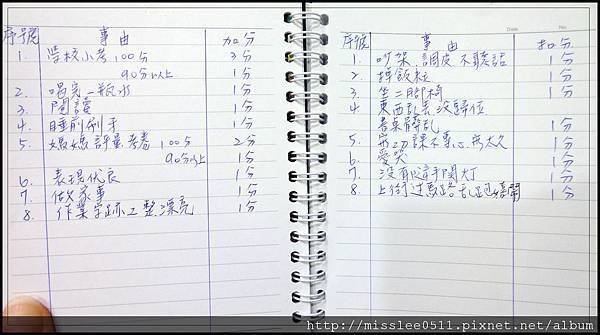 序號 事由 加分
1. 学校小考 100分 3分
90分以上 1分
2. 喝完一瓶水 1分
3. 閱讀 1分
4. 睡前刷牙 1分
5. 媽媽評量考卷 100分 2分
90分以上 1分
6. 表現优良 1分
7. 做家事 1分
8. 作業字跡工整.漂亮 1分
Date No
序號 事由 扣分
1. 吵架.調皮 不聽話 1分
2. 掉飯粒 1分
3. 坐二脚椅 1分
4. 東西乱丢 沒歸位 1分
書桌髒乱
5. 寫功課不專心.寫太久 1分
6. 愛哭 1分
7. 沒有随手関灯 1分
8. 上街过馬路 乱跑 1分
http://misslee0511.pixnet.net/album